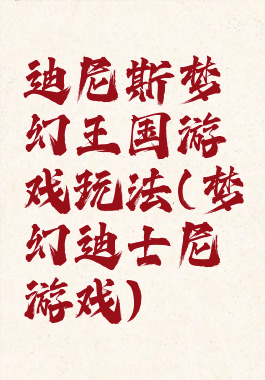 迪尼斯梦
幻王国游
戏玩法(梦
幻迪士尼
游戏)